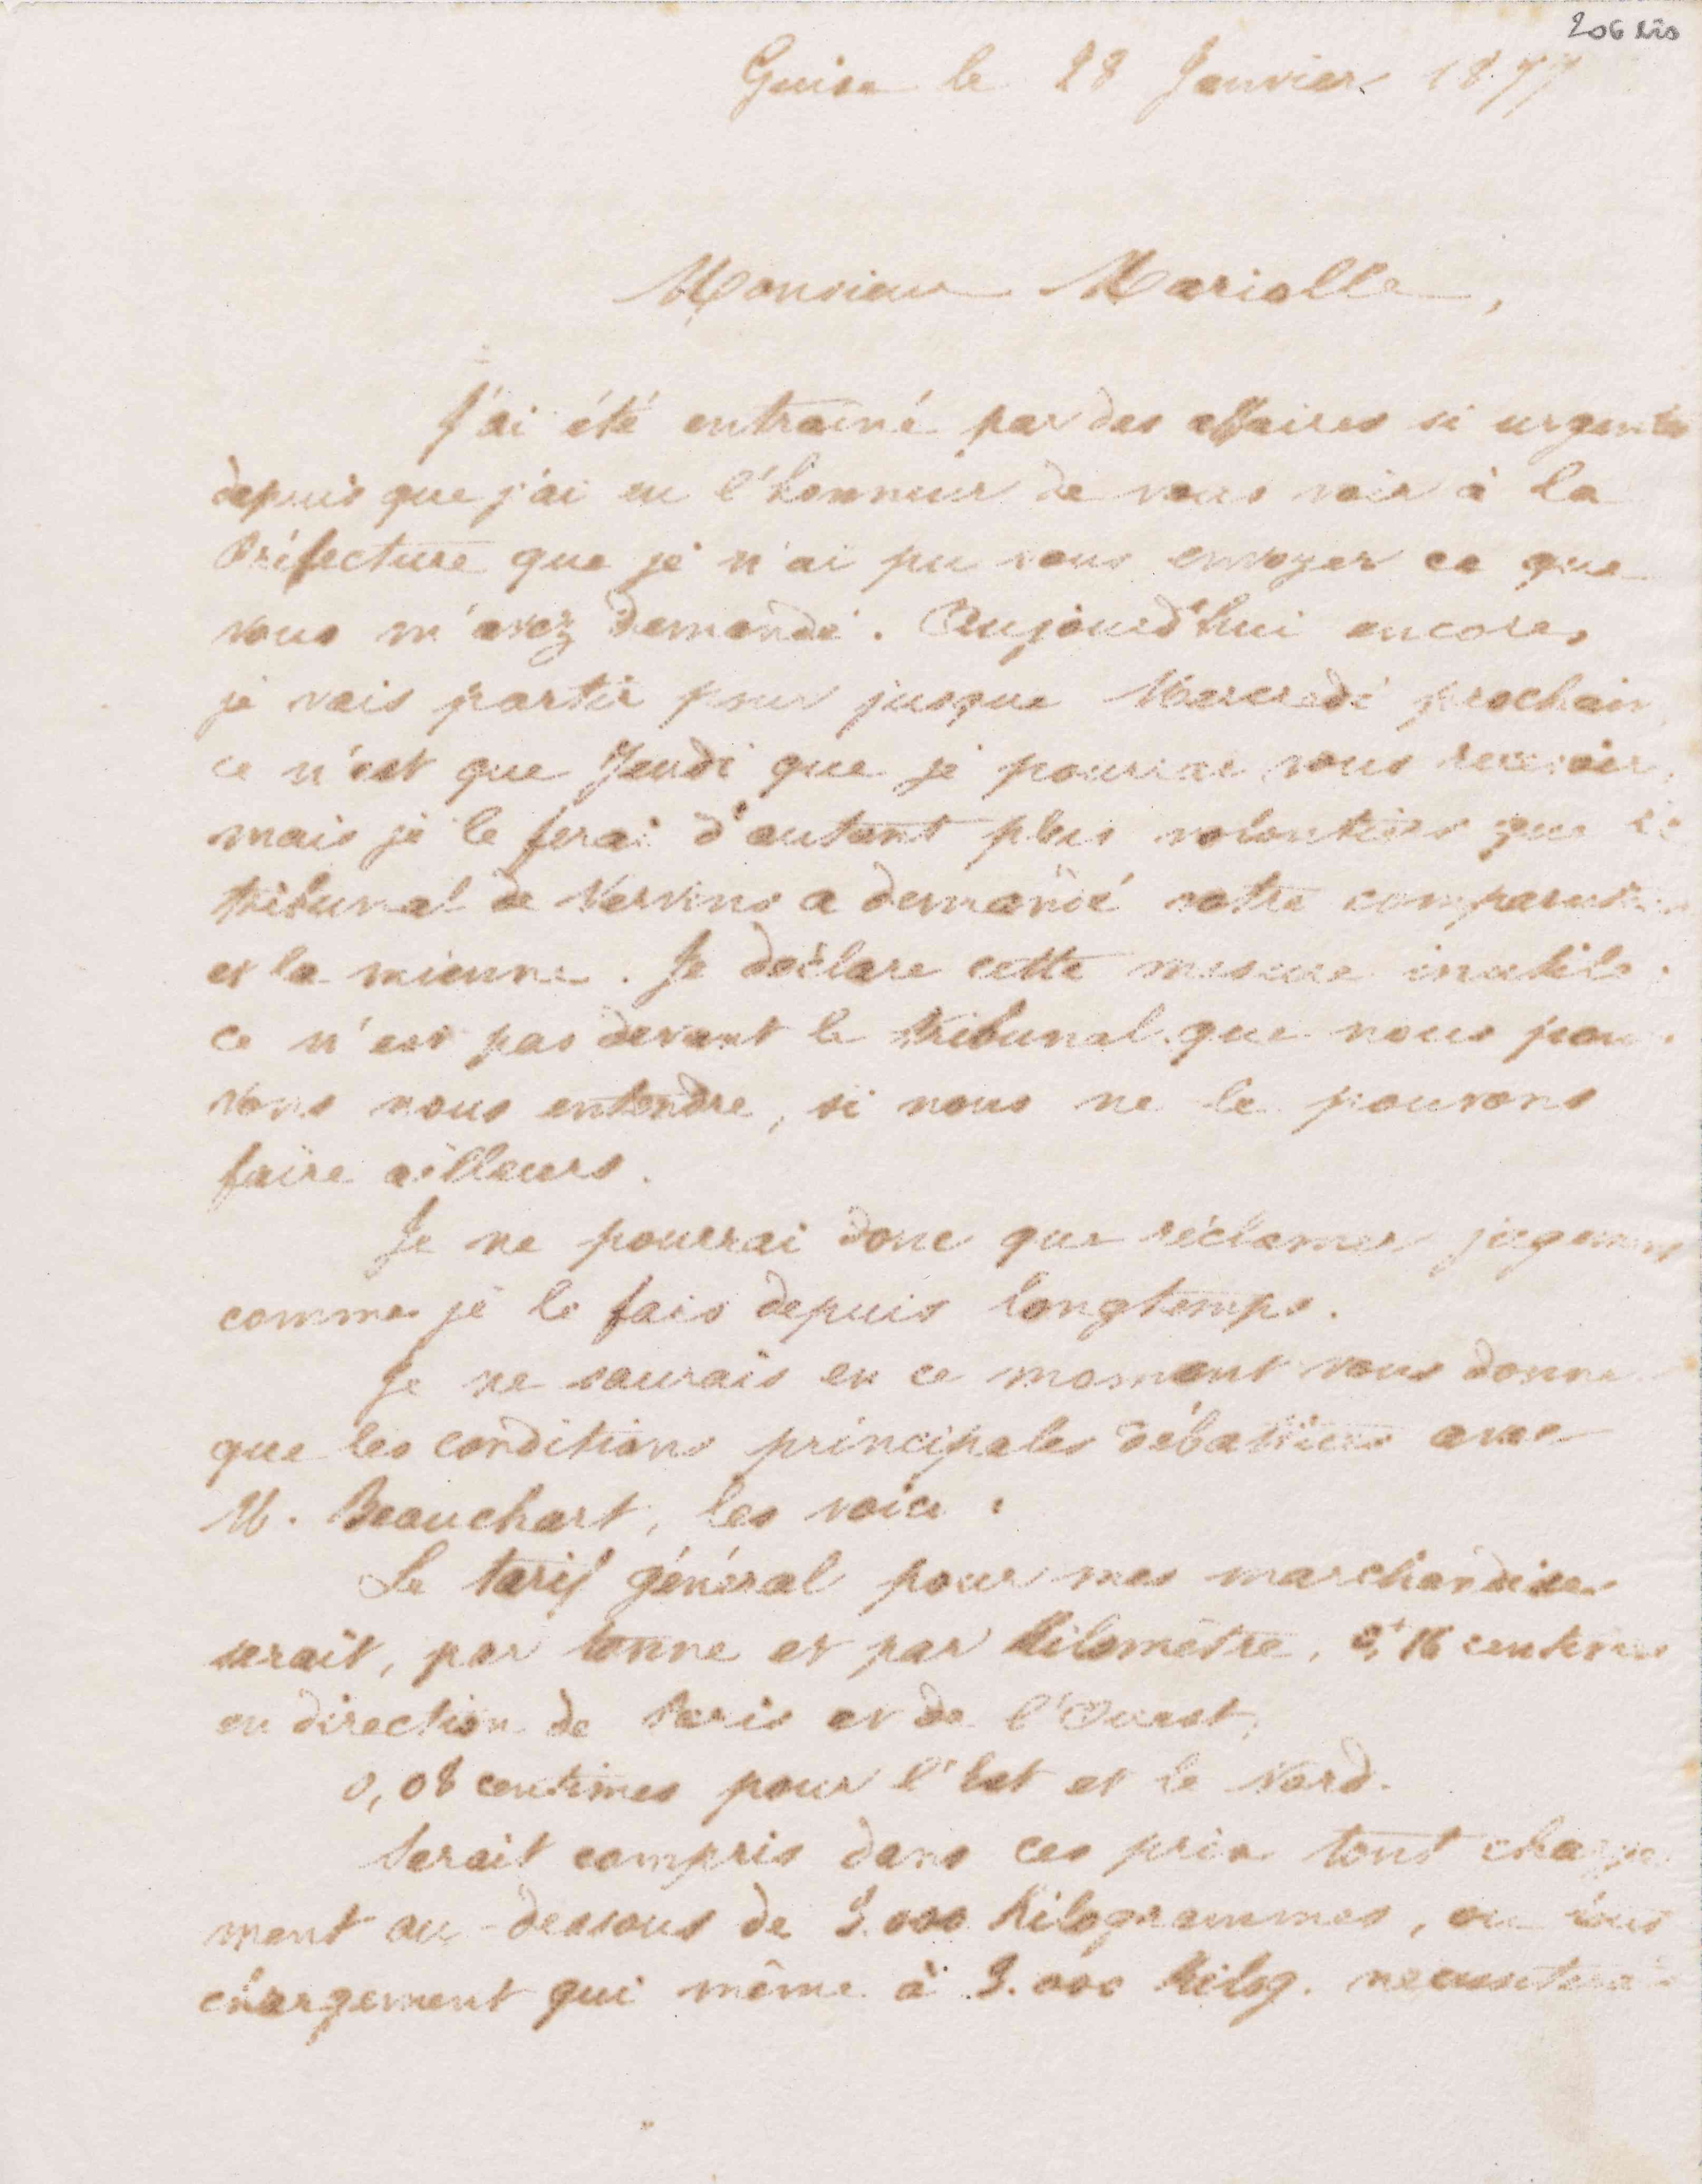 206 bis
Guise le 28 Janvier 1877
Monsieur Mariolle,
J'ai été entrainé par des affaires si urgentes
depuis que j'ai eu l'honneur de vous voir à la
Préfecture que je n'ai pu vous envoyer ce que
vous m'avez demandé. Aujourd'hui encore,
je vais partir pour jusque Mercredi prochain
ce n'est que Jeudi que je pourrai vous recevoir,
mais je le ferai d'autant plus volontiers que le
tribunal de Vervins a demandé votre comparution
et la mienne. Je déclare cette mesure inutile.
ce n'est pas devant le tribunal que nous pou-
vons nous entendre, si nous ne le pouvons
faire ailleurs.
Je ne pourrai donc que réclamer jugement
comme je le fais depuis longtemps.
Je ne saurais en ce moment vous donner
que les conditions principales débattues avec
M. Beauchart, les voici :
Le tarif général pour mes marchandises
serait, par tonne et par kilomètre, 16 centimes
en direction de Paris et de l'Ouest,
0,08 centimes pour l'Est et le Nord.
Serait compris dans ces prix tout charge-
ment au-dessous de 3.000 kilogrammes, ou tout
chargement qui même à 3.000 kilog. necessiterait